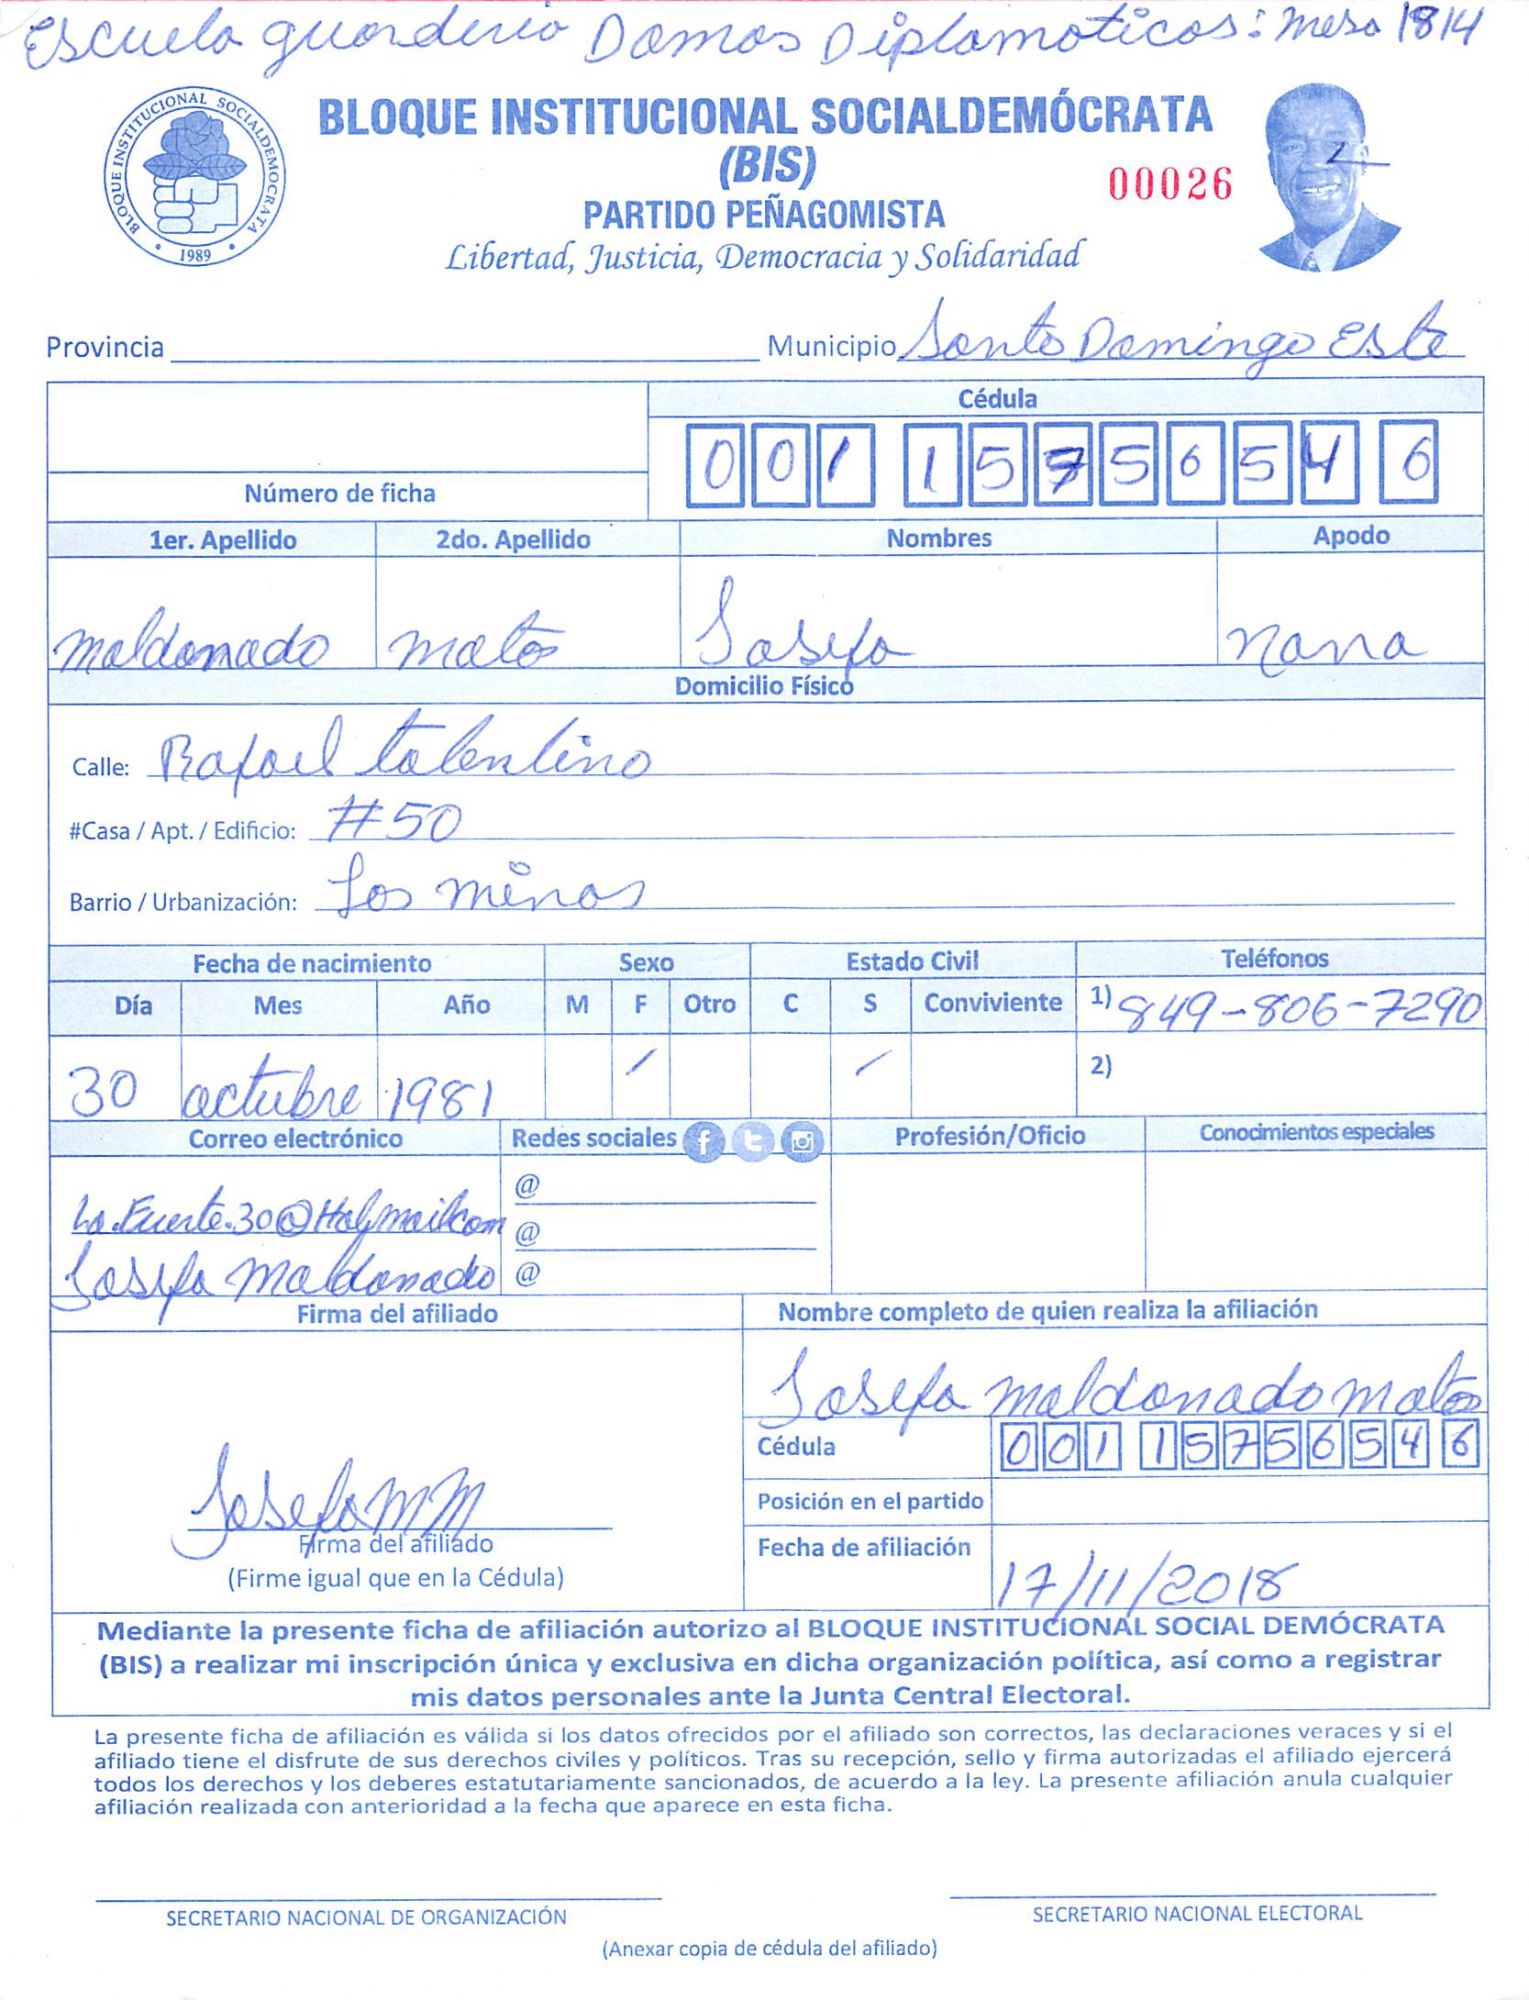 Escuela guarderia Damas Diplomaticas: mesa 1814
BLOQUE INSTITUCIONAL SOCIALDEMOCRATA
1989
BLOQUE INSTITUCIONAL SOCIALDEMÓCRATA
(BIS)
00026
PARTIDO PEÑAGOMISTA
Libertad, Justicia, Democracia y Solidaridad
Provincia Municipio Santo Domingo Este
Cédula
001 1575654 6
Número de ficha
1er. Apellido 2do. Apellido Nombres Apodo
maldonado matos Josefa nana
Domicilio Físico
Calle: Rafael talentino
#Casa / Apt. / Edificio: #50
Barrio / Urbanización: Los minas
Fecha de nacimiento Sexo Estado Civil Teléfonos
Día Mes Año M F Otro C S Conviviente 1) 849-806-7290
30 octubre 1981 / / 2)
Correo electrónico Redes sociales Profesión/Oficio Conocimientos especiales
@
La.Fuerte.30@ @
Josefa maldonado @
Firma del afiliado Nombre completo de quien realiza la afiliación
Josefa maldonado matos
Cédula 001 1575654 6
Josefa MM
Posición en el partido
Firma del afiliado
Fecha de afiliación 17/11/2018
(Firme igual que en la Cédula)
Mediante la presente ficha de afiliación autorizo al BLOQUE INSTITUCIONAL SOCIAL DEMÓCRATA
(BIS) a realizar mi inscripción única y exclusiva en dicha organización política, así como a registrar
mis datos personales ante la Junta Central Electoral.
La presente ficha de afiliación es válida si los datos ofrecidos por el afiliado son correctos, las declaraciones veraces y si el
afiliado tiene el disfrute de sus derechos civiles y políticos. Tras su recepción, sello y firma autorizadas el afiliado ejercerá
todos los derechos y los deberes estatutariamente sancionados, de acuerdo a la ley. La presente afiliación anula cualquier
afiliación realizada con anterioridad a la fecha que aparece en esta ficha.
SECRETARIO NACIONAL DE ORGANIZACIÓN SECRETARIO NACIONAL ELECTORAL
(Anexar copia de cédula del afiliado)